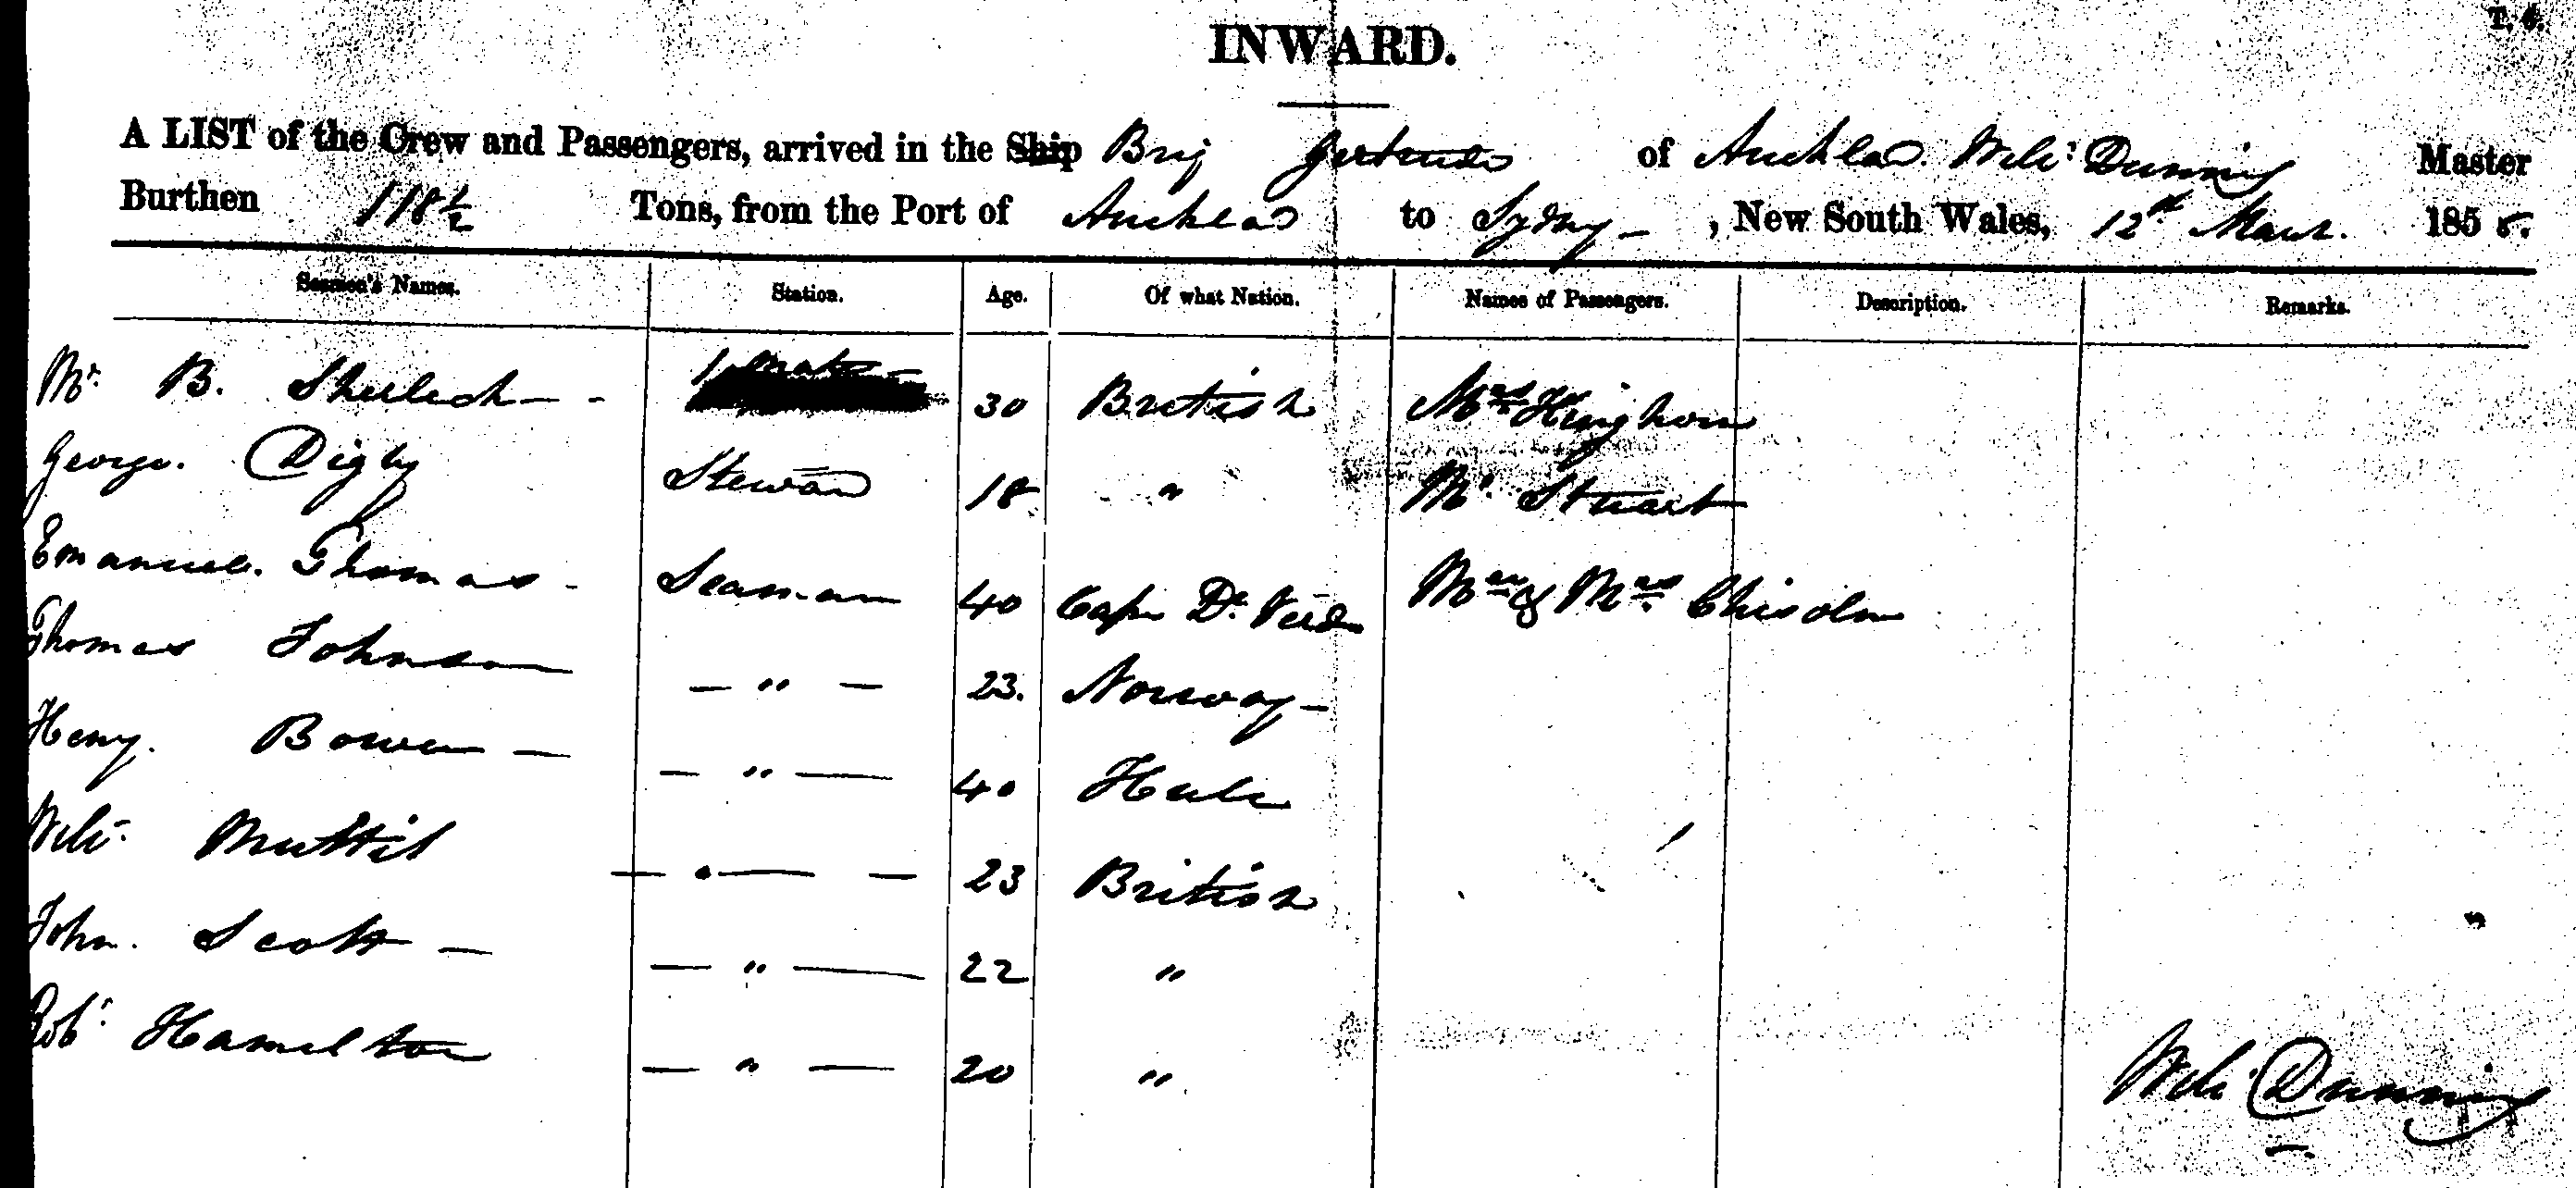 T. 4.
INWARD.
A LIST of the Crew and Passengers, arrived in the Ship Brig Gertrude of Auckland Willm Dunning Master
Burthen 118½ Tons, from the Port of Auckland to Sydney – , New South Wales, 12th March 1858.
Seamen's Names. Station. Age. Of what Nation. Names of Passengers. Description. Remarks.
Mr. B. Sherlock 1 mate 30 British Mrs Kinghorn
George. Digby Steward 18 " Mr. Stuart
Emanuel. Thomas - Seaman 40 Cape De Verde Mr & Mrs Chisolm
Thomas Johnson — " — 23. Norway –
Heny. Bowen — — " — 40
Willm. — " — 23 British
John. Scott — — " — 22 "
Robt. Hamilton — " — 20 "
Willm Dunning